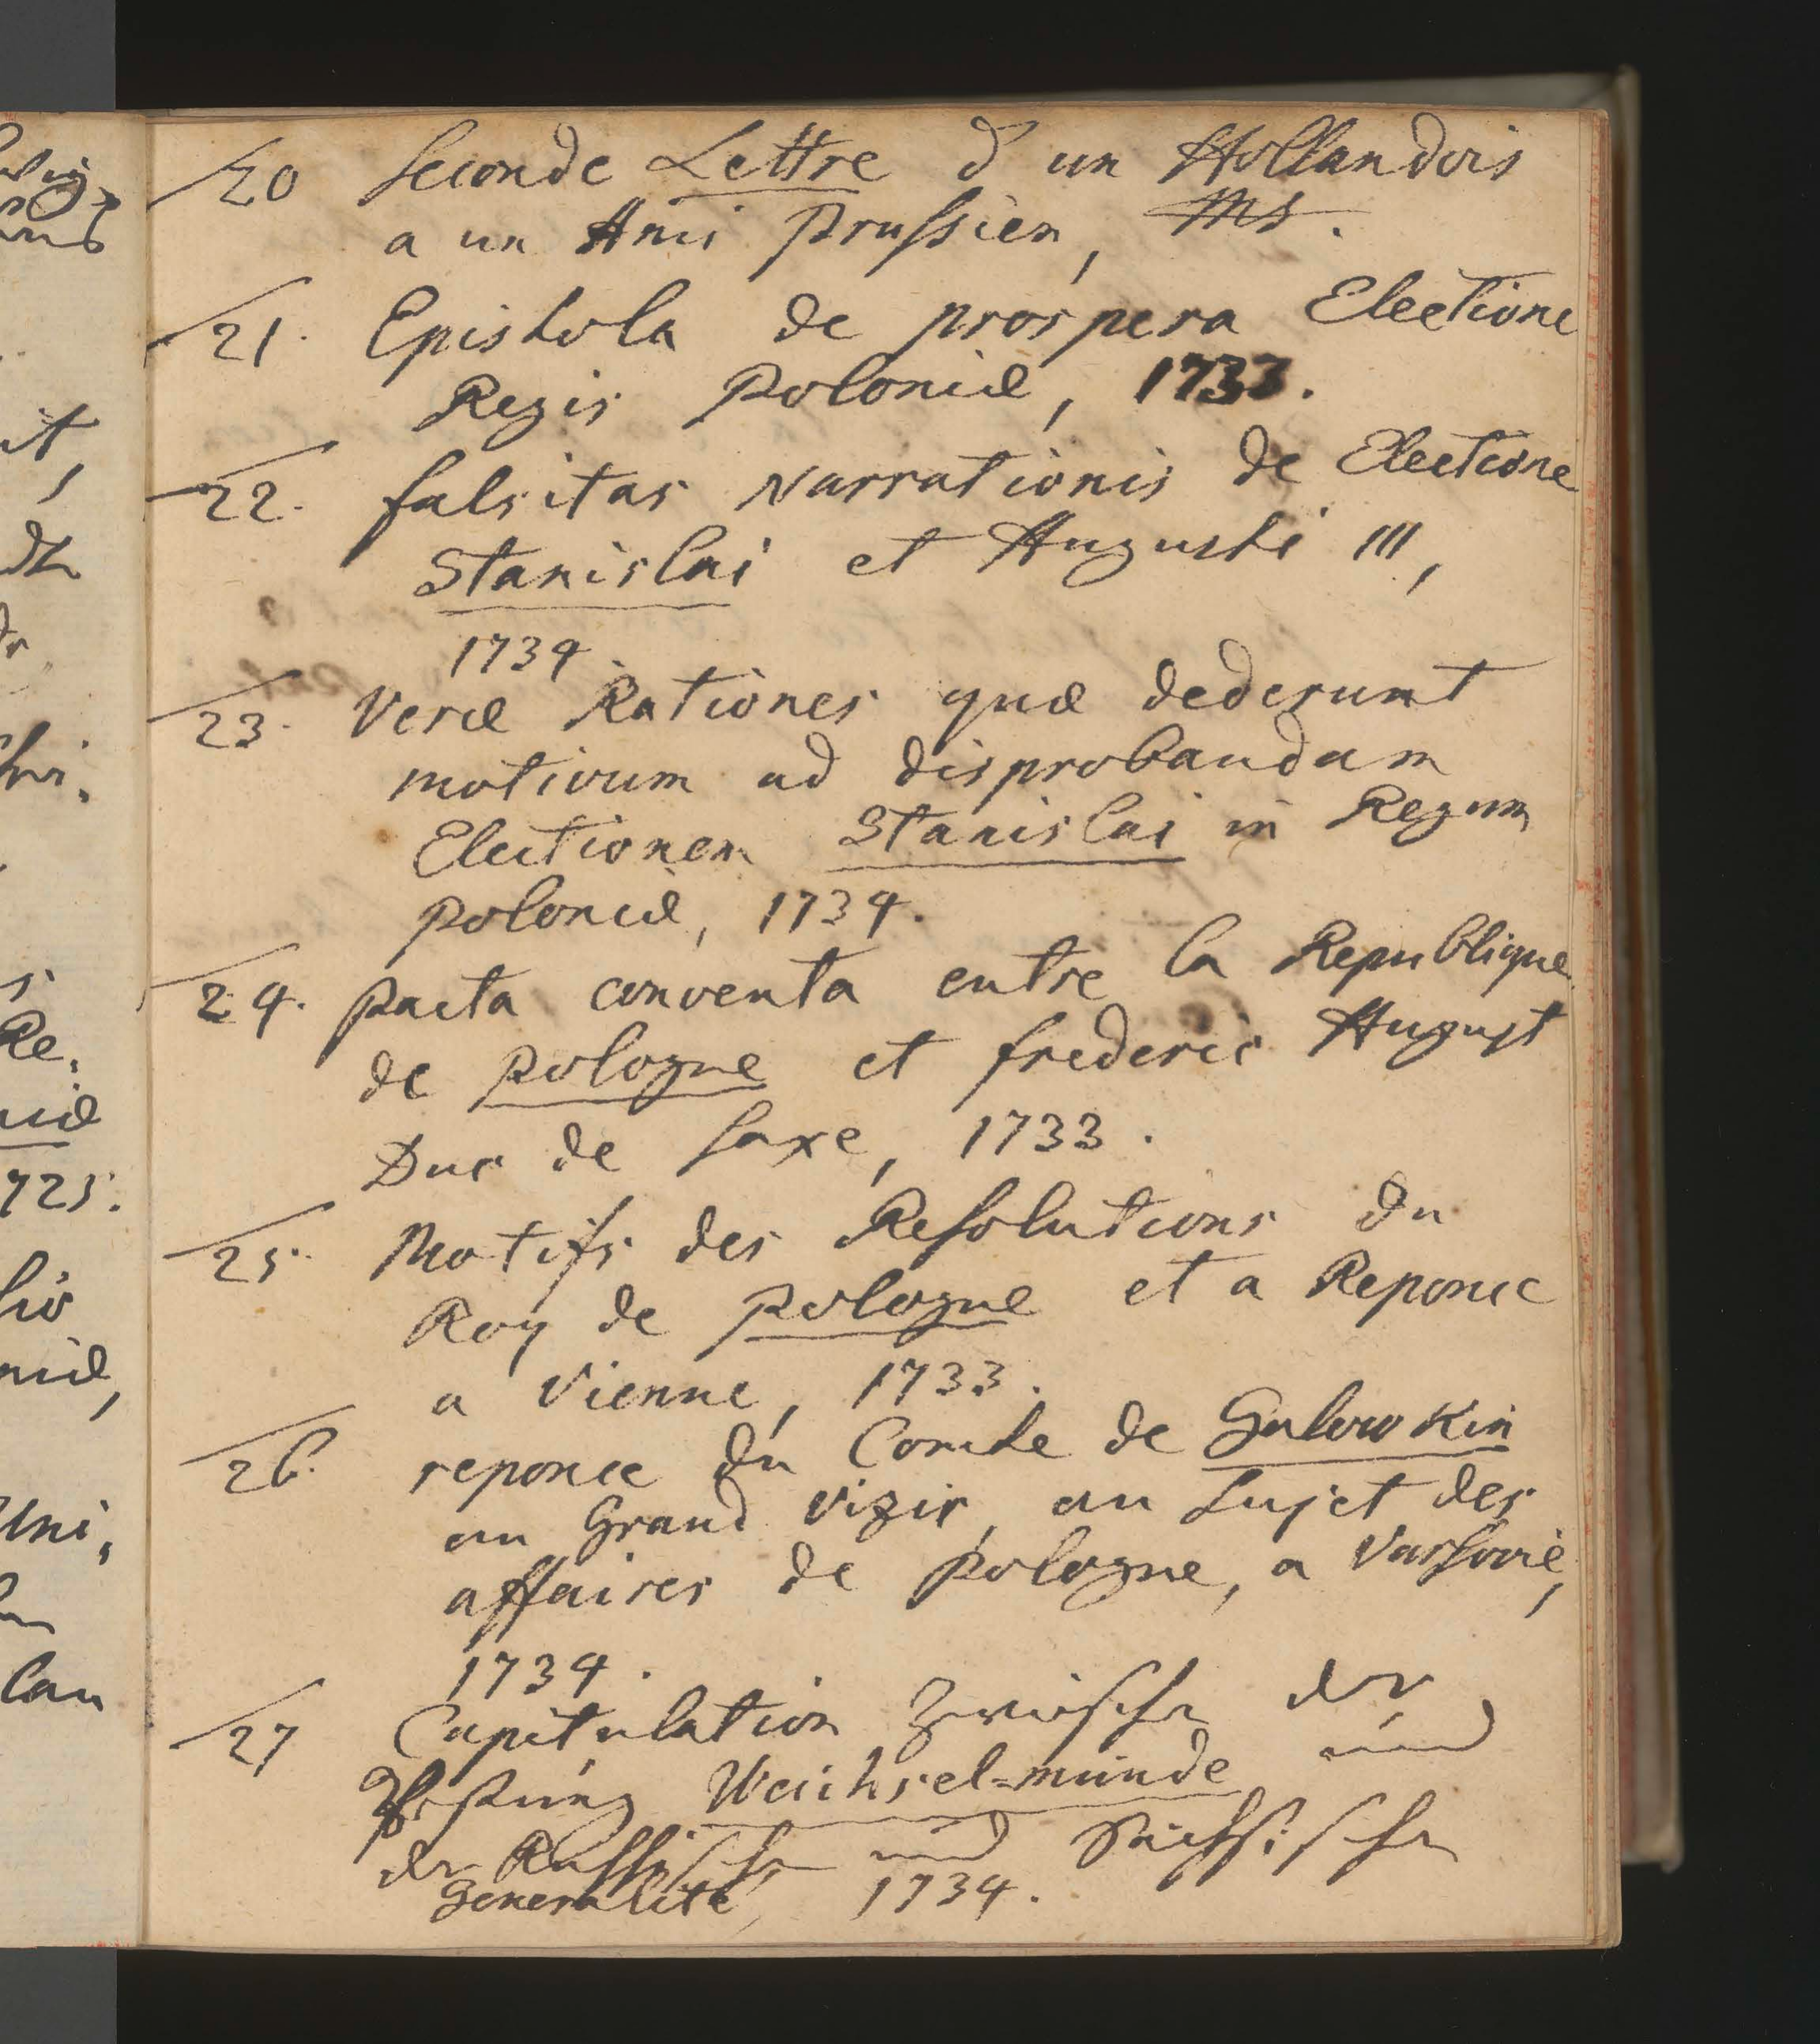 20 Seconde Lettre d'un Hollandois
a un Ami Prussien, Ms.
21. Epistola de prospera Electione
Regis Poloniæ, 1733.
22. falsitas Narrationis de Electione
Stanislai et Augusti III,
1734
23. Veræ Rationes quæ dederunt
motivum ad disprobandam
Electionem Stanislai in Regem
Poloniæ, 1734.
24. Pacta conventa entre la Republique
de Pologne et frederic August
Duc de Saxe, 1733.
25. Motifs des Resolutions du
Roy de Pologne et a Reponce
a Vienne, 1733.
26. reponce du Comte de Golowkin
au Grand Vizir, au Sujet des
affaires de Pologne, a Varsovie,
1734.
27 Capitulation zwischen der
Vestung Weichsel=münde und
der Russischen und Sächsischen
Generalité, 1734.